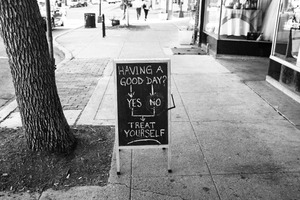 HAVING A
GOOD DAY?
YES NO
TREAT
YOURSELF